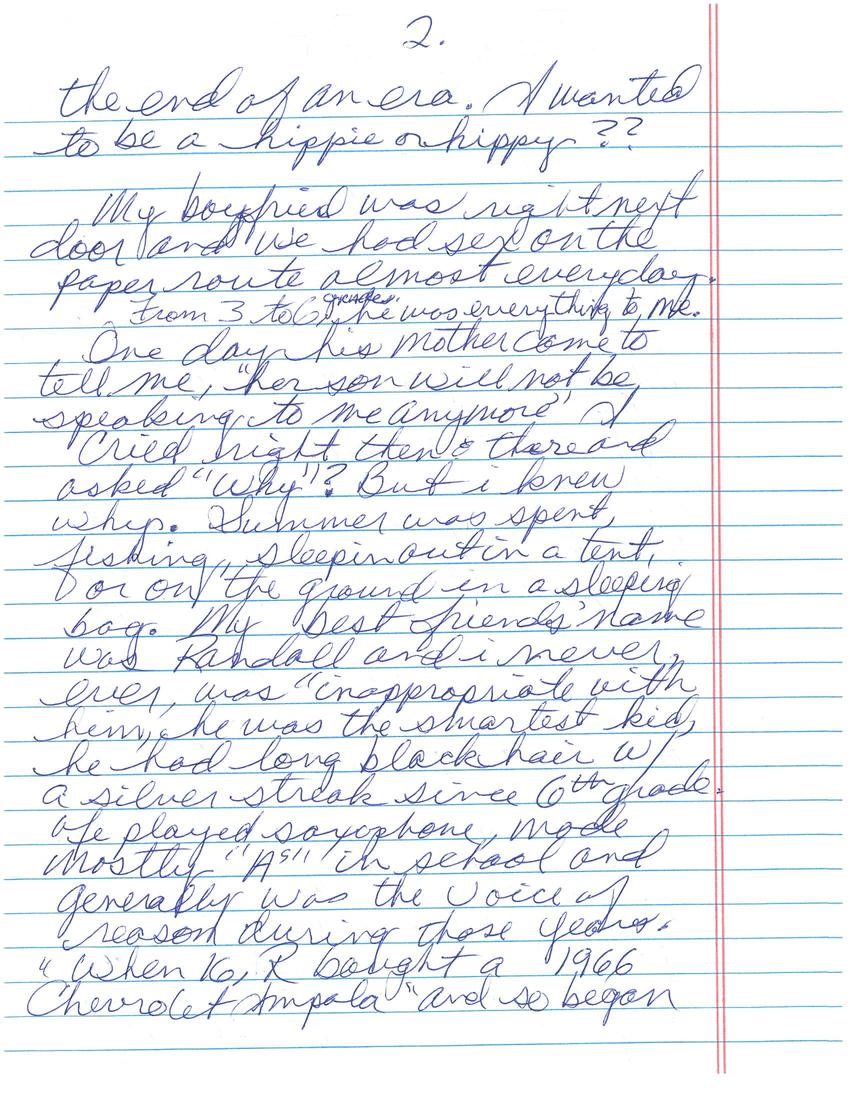 2.
the end of an era. I wanted
to be a hippie or hippy ??
My boyfried was right next
door and we had sex on the
paper route almost everyday.
From 3 to 6 grades, he was everything to me.
One day his mother come to
tell me, "her son will not be
speaking to me anymore" I
Cried right then & there and
asked "Why"? But i knew
why. Summer was spent,
fishing, sleepin out in a tent,
or on the ground in a sleeping
bag. My best friends' name
was Randall and i never,
ever, was "inappropriate with
him, he was the smartest kid,
he had long black hair w/
a silver streak since 6th grade.
He played saxophone, made
mostly "A's" in school and
generally was the voice of
reason during those years.
"When 16, R bought a 1966
Chevrolet Impala" and so began